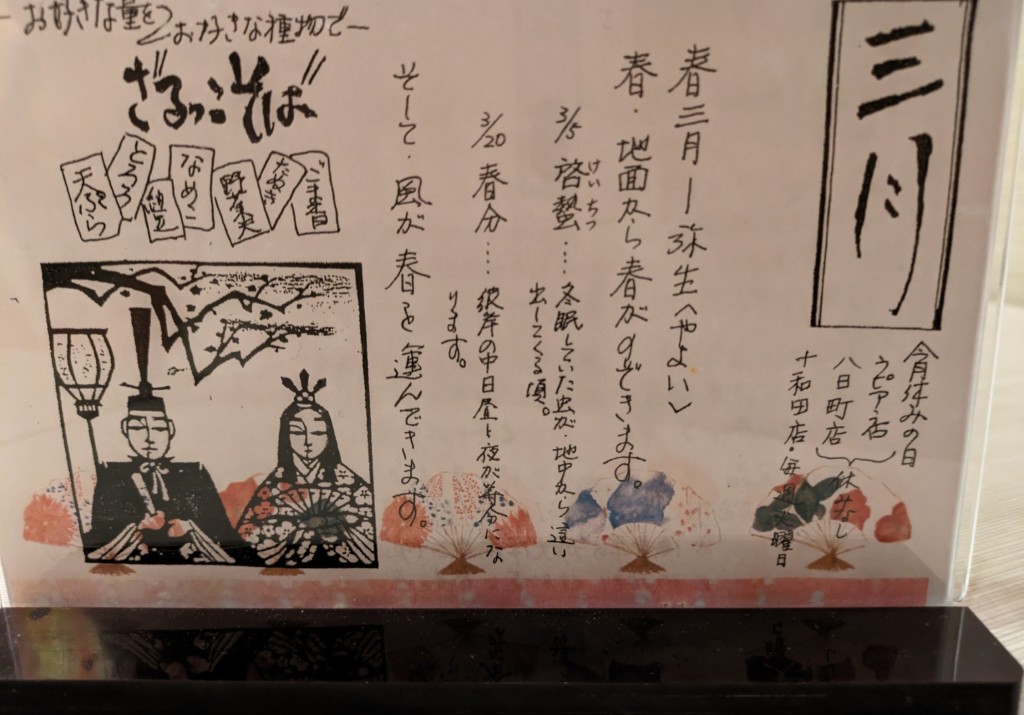 三月
今月休みの日
ラピア店
八日町店
休みなし
十和田店・毎週火曜日
春三月ー弥生<やよい>
春・地面から春がのぞきます。
3/5 啓蟄‥‥冬眠していた虫が・地中から這い
けいちつ
出してくる頃。
3/20 春分‥‥彼岸の中日昼と夜が等分にな
ります。
そして・風が春を運んできます。
お好きな量を お好きな種物で
ざるっこそば
ご来番
なめこ
とろろ
天ぷら